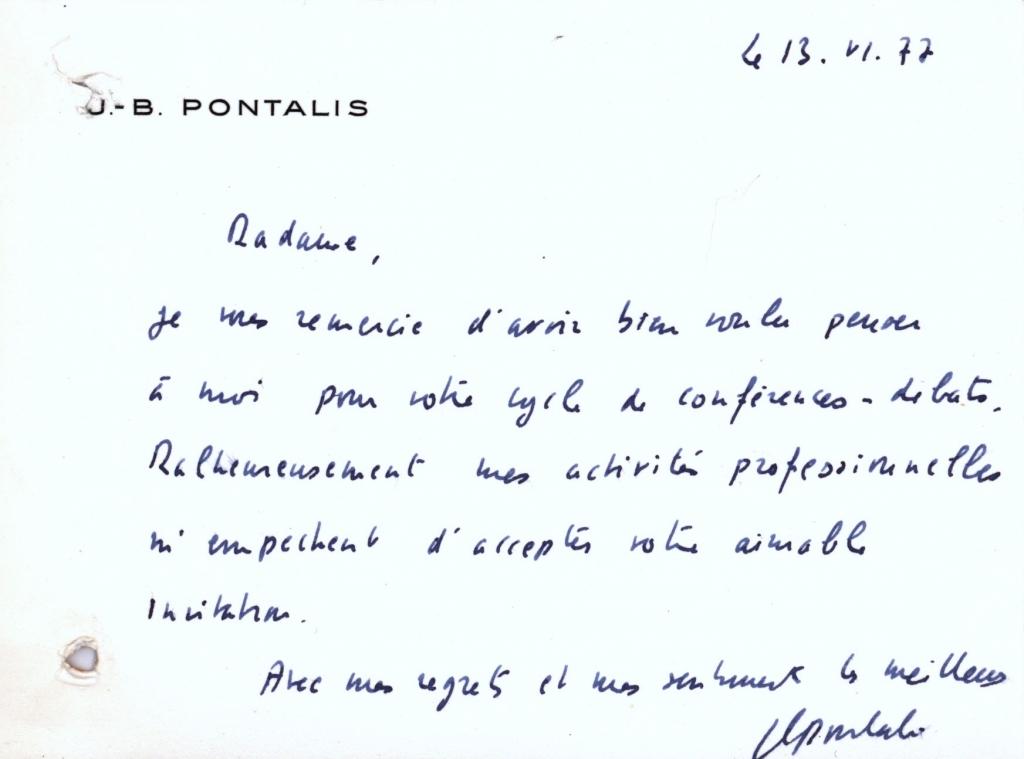 Le 13. VI. 77
J.-B. PONTALIS
Madame,
je vous remercie d'avoir bien voulu penser
à moi pour votre cycle de conférences-débats.
Malheureusement mes activités professionnelles
m'empêchent d'accepter votre aimable
invitation.
Avec mes regrets et mes sentiments les meilleurs
JBPontalis